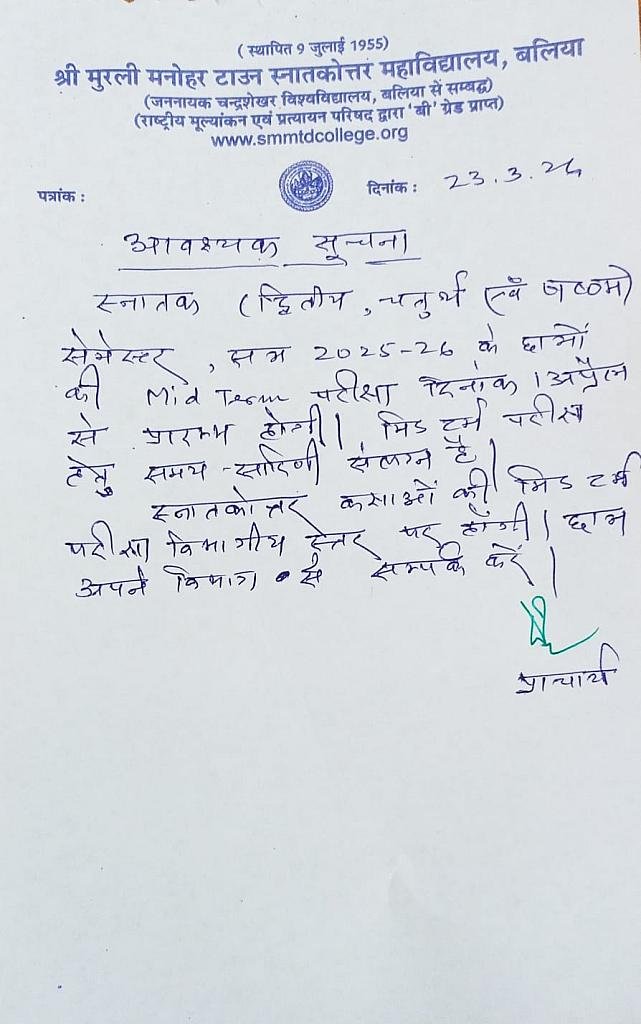 ( स्थापित 9 जुलाई 1955)
श्री मुरली मनोहर टाउन स्नातकोत्तर महाविद्यालय, बलिया
(जननायक चन्द्रशेखर विश्वविद्यालय, बलिया से सम्बद्ध)
(राष्ट्रीय मूल्यांकन एवं प्रत्यायन परिषद द्वारा 'बी' ग्रेड प्राप्त)
www.smmtdcollege.org
पत्रांक : दिनांक : 23.3.26
आवश्यक सूचना
स्नातक (द्वितीय, चतुर्थ एवं षष्ठम)
सेमेस्टर, सत्र 2025-26 के छात्रों
की Mid Term परीक्षा दिनांक 1 अप्रैल
से प्रारम्भ होगी। मिड टर्म परीक्षा
हेतु समय-सारिणी संलग्न है।
स्नातकोत्तर कक्षाओं की मिड टर्म
परीक्षा विभागीय स्तर पर होंगी। छात्र
अपने विभाग से सम्पर्क करें।
प्राचार्य